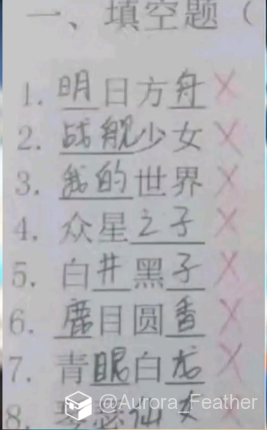 一、填空题（
1. 明日方舟 ×
2. 战舰少女 ×
3. 我的世界 ×
4. 众星之子 ×
5. 白井黑子 ×
6. 鹿目圆香 ×
7. 青眼白龙 ×
8.
@Aurora_Feather